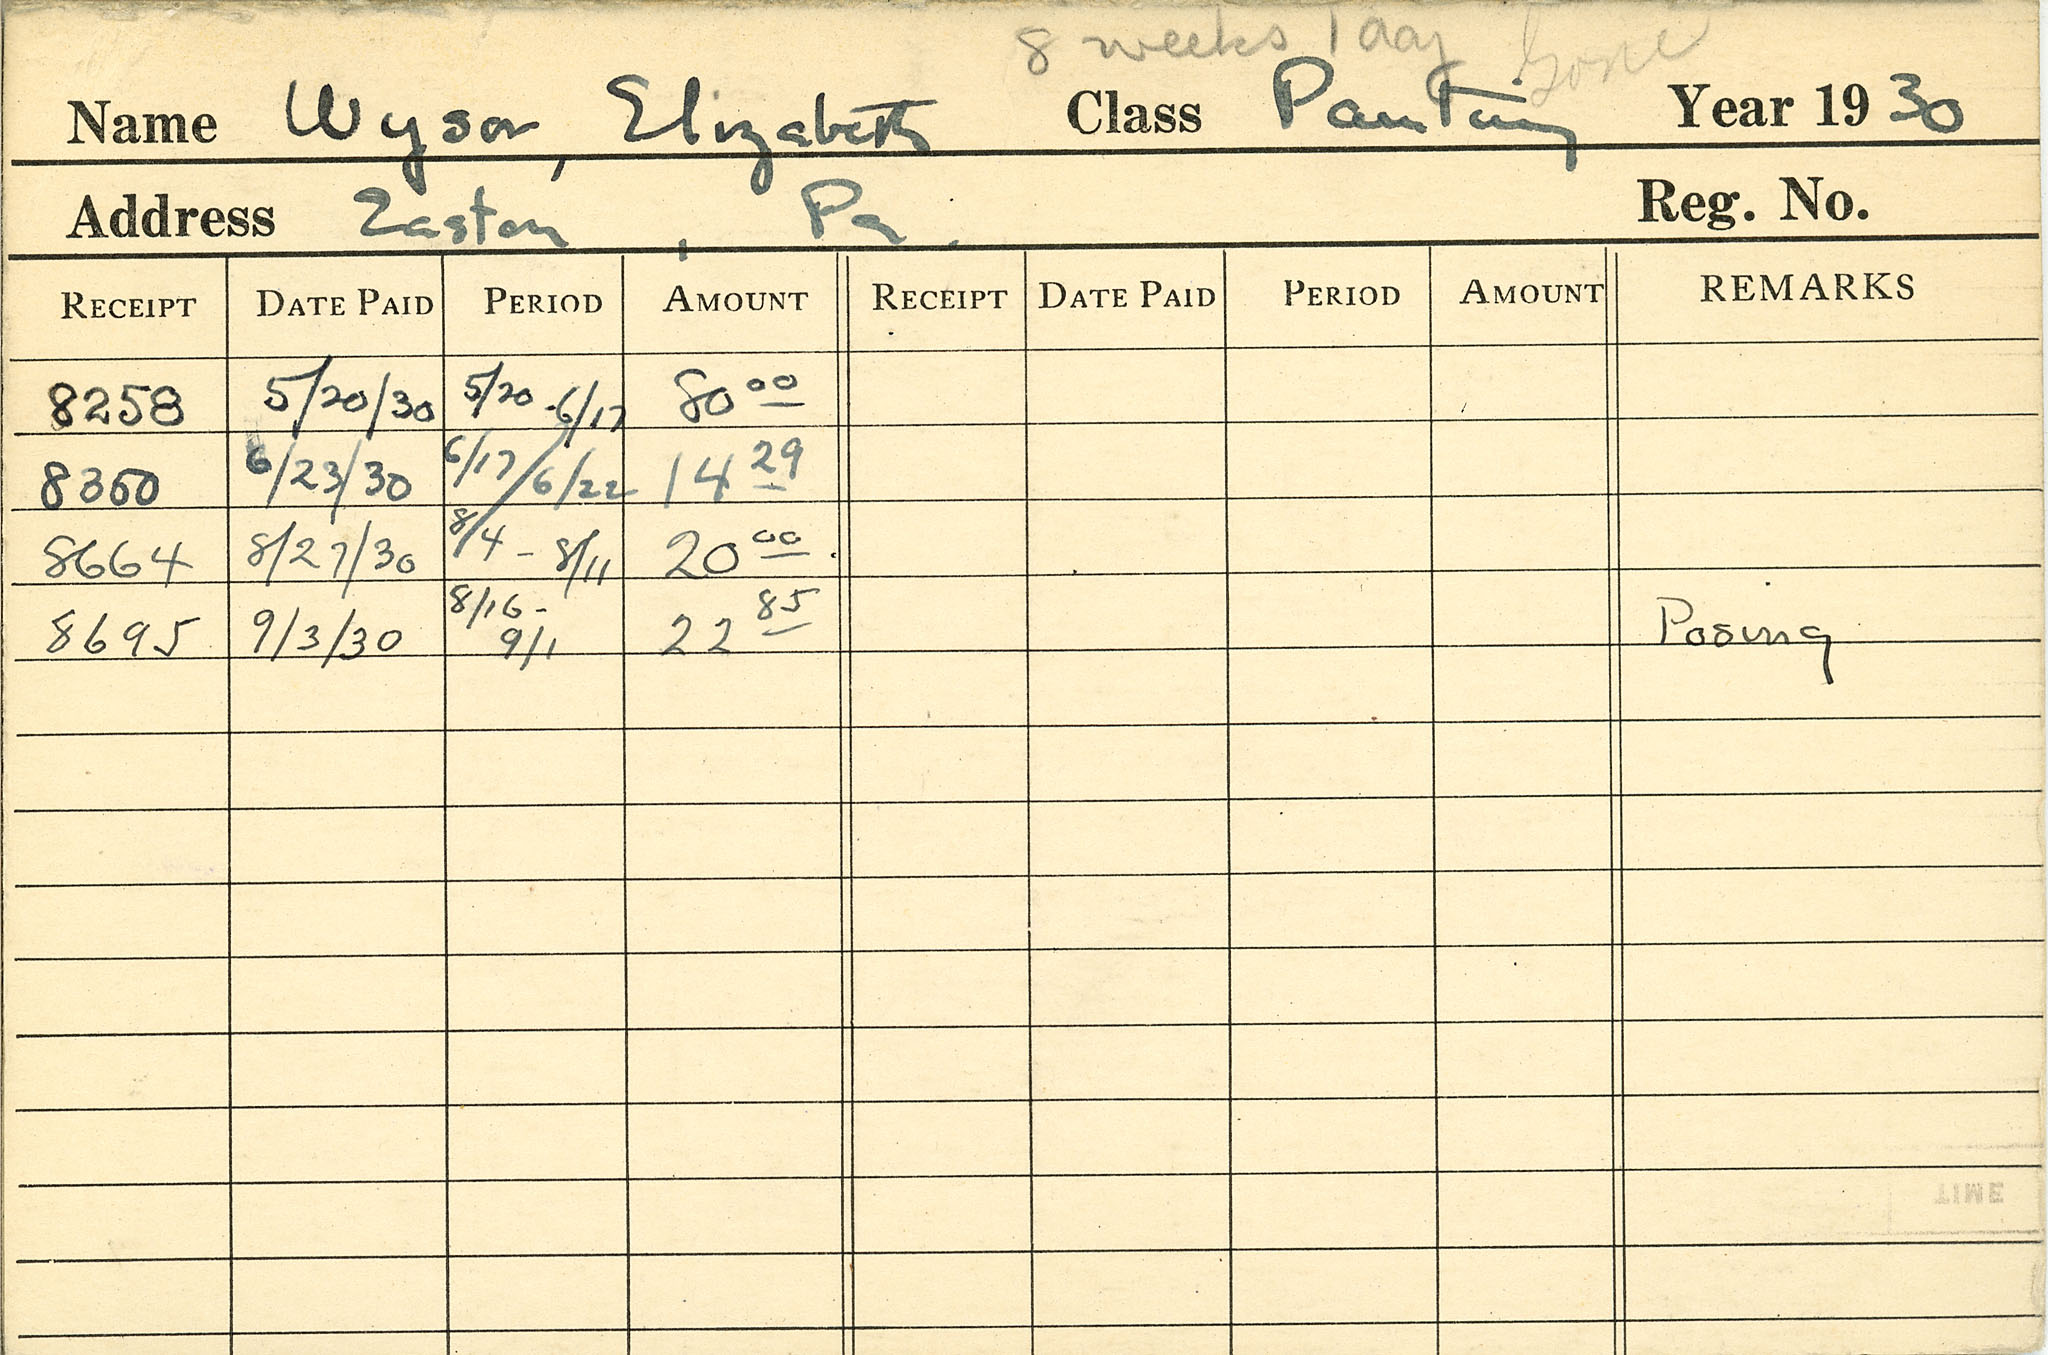 8 weeks 1 day Gone
Name Wysor, Elizabeth Class Painting Year 1930
Address Easton, Pa. Reg. No.
RECEIPT DATE PAID PERIOD AMOUNT RECEIPT DATE PAID PERIOD AMOUNT REMARKS
8258 5/20/30 5/20-6/17 80 00
8360 6/23/30 6/17/6/22 14 29
8664 8/27/30 8/4-8/11 20 00
8695 9/3/30 8/16-9/1 22 85 Posing
TIME